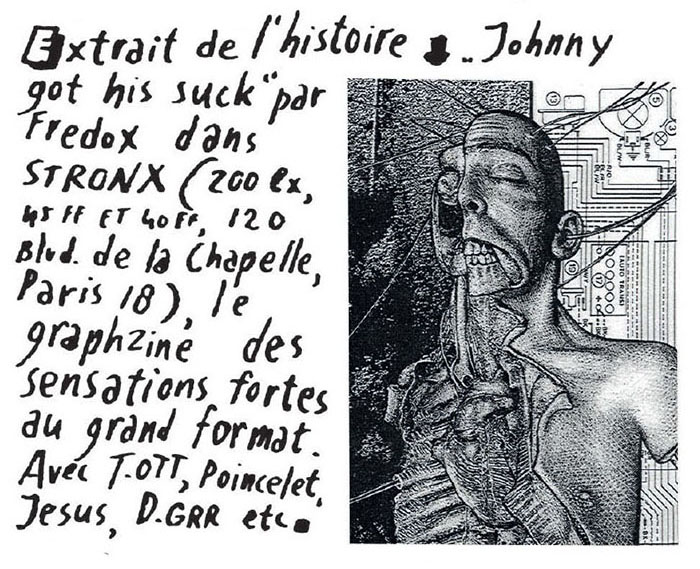 Extrait de l'histoire .. Johnny
got his suck" par
Fredox dans
STRONX (200 ex,
45 FF ET 40 FF, 120
Blvd. de la Chapelle,
Paris 18), le
graphzine des
sensations fortes
au grand format.
Avec T.OTT, Poincelet,
Jesus, D.GRR etc.
(AUTO TRANS)